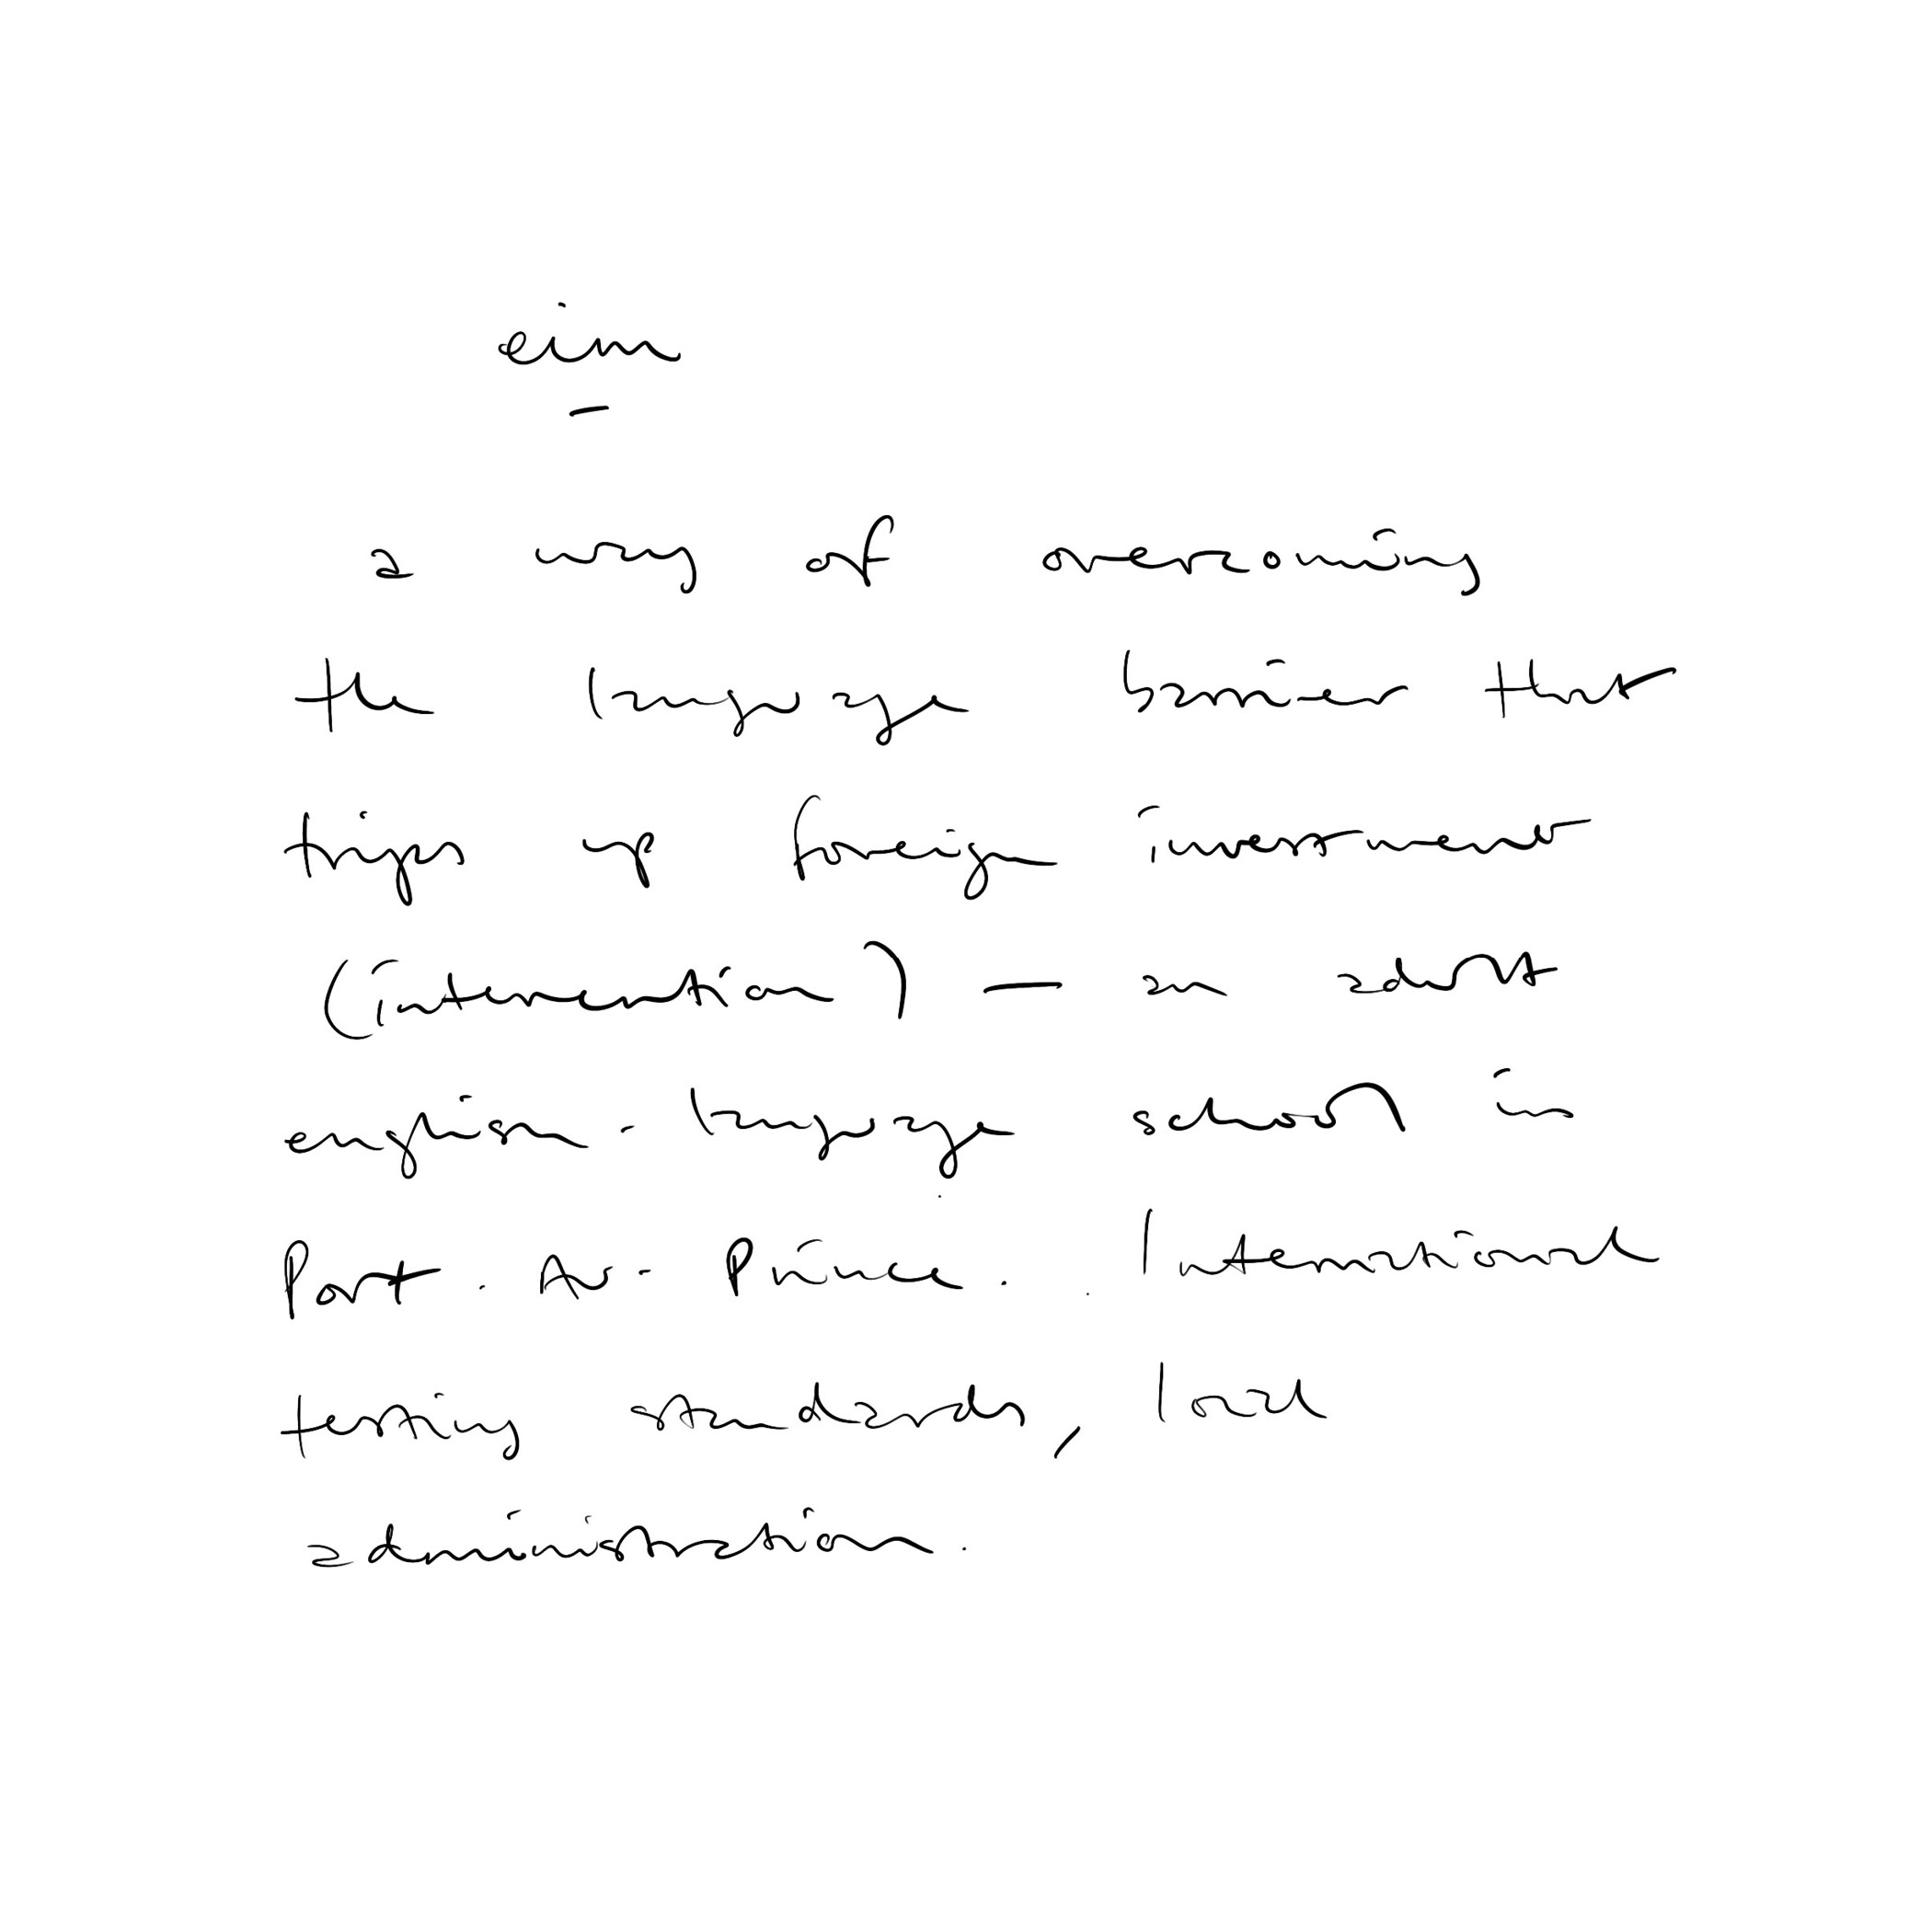 aim
—
a way of overcoming
the language barrier that
trips up foreign investment
(intervention) — an adult
english-language school in
Port-Au-Prince. International
testing standards, local
administration.